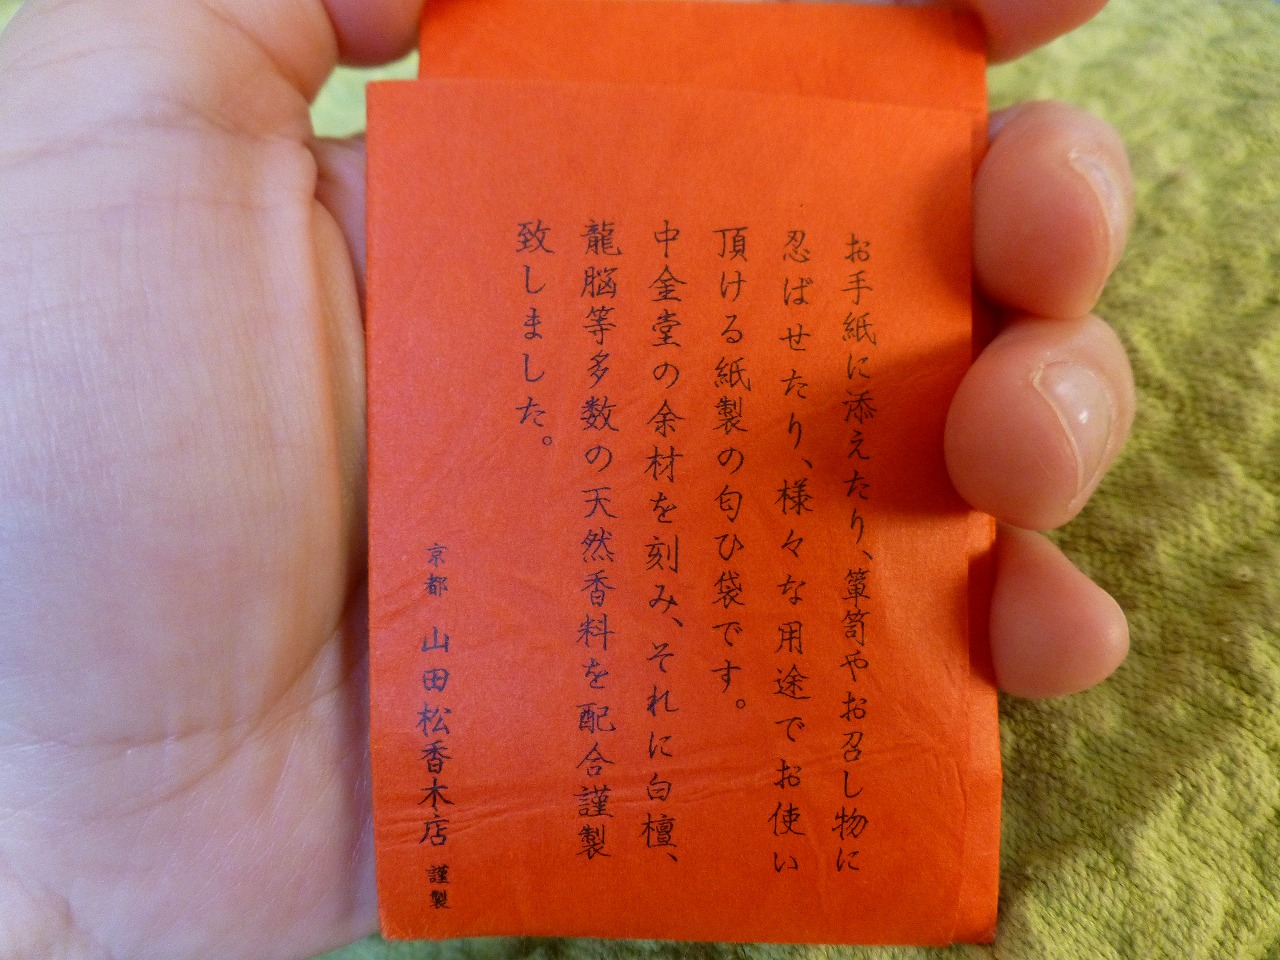 お手紙に添えたり、箪笥やお召し物に
忍ばせたり、様々な用途でお使い
頂ける紙製の匂ひ袋です。
中金堂の余材を刻み、それに白檀、
龍脳等多数の天然香料を配合謹製
致しました。
京都 山田松香木店 謹製